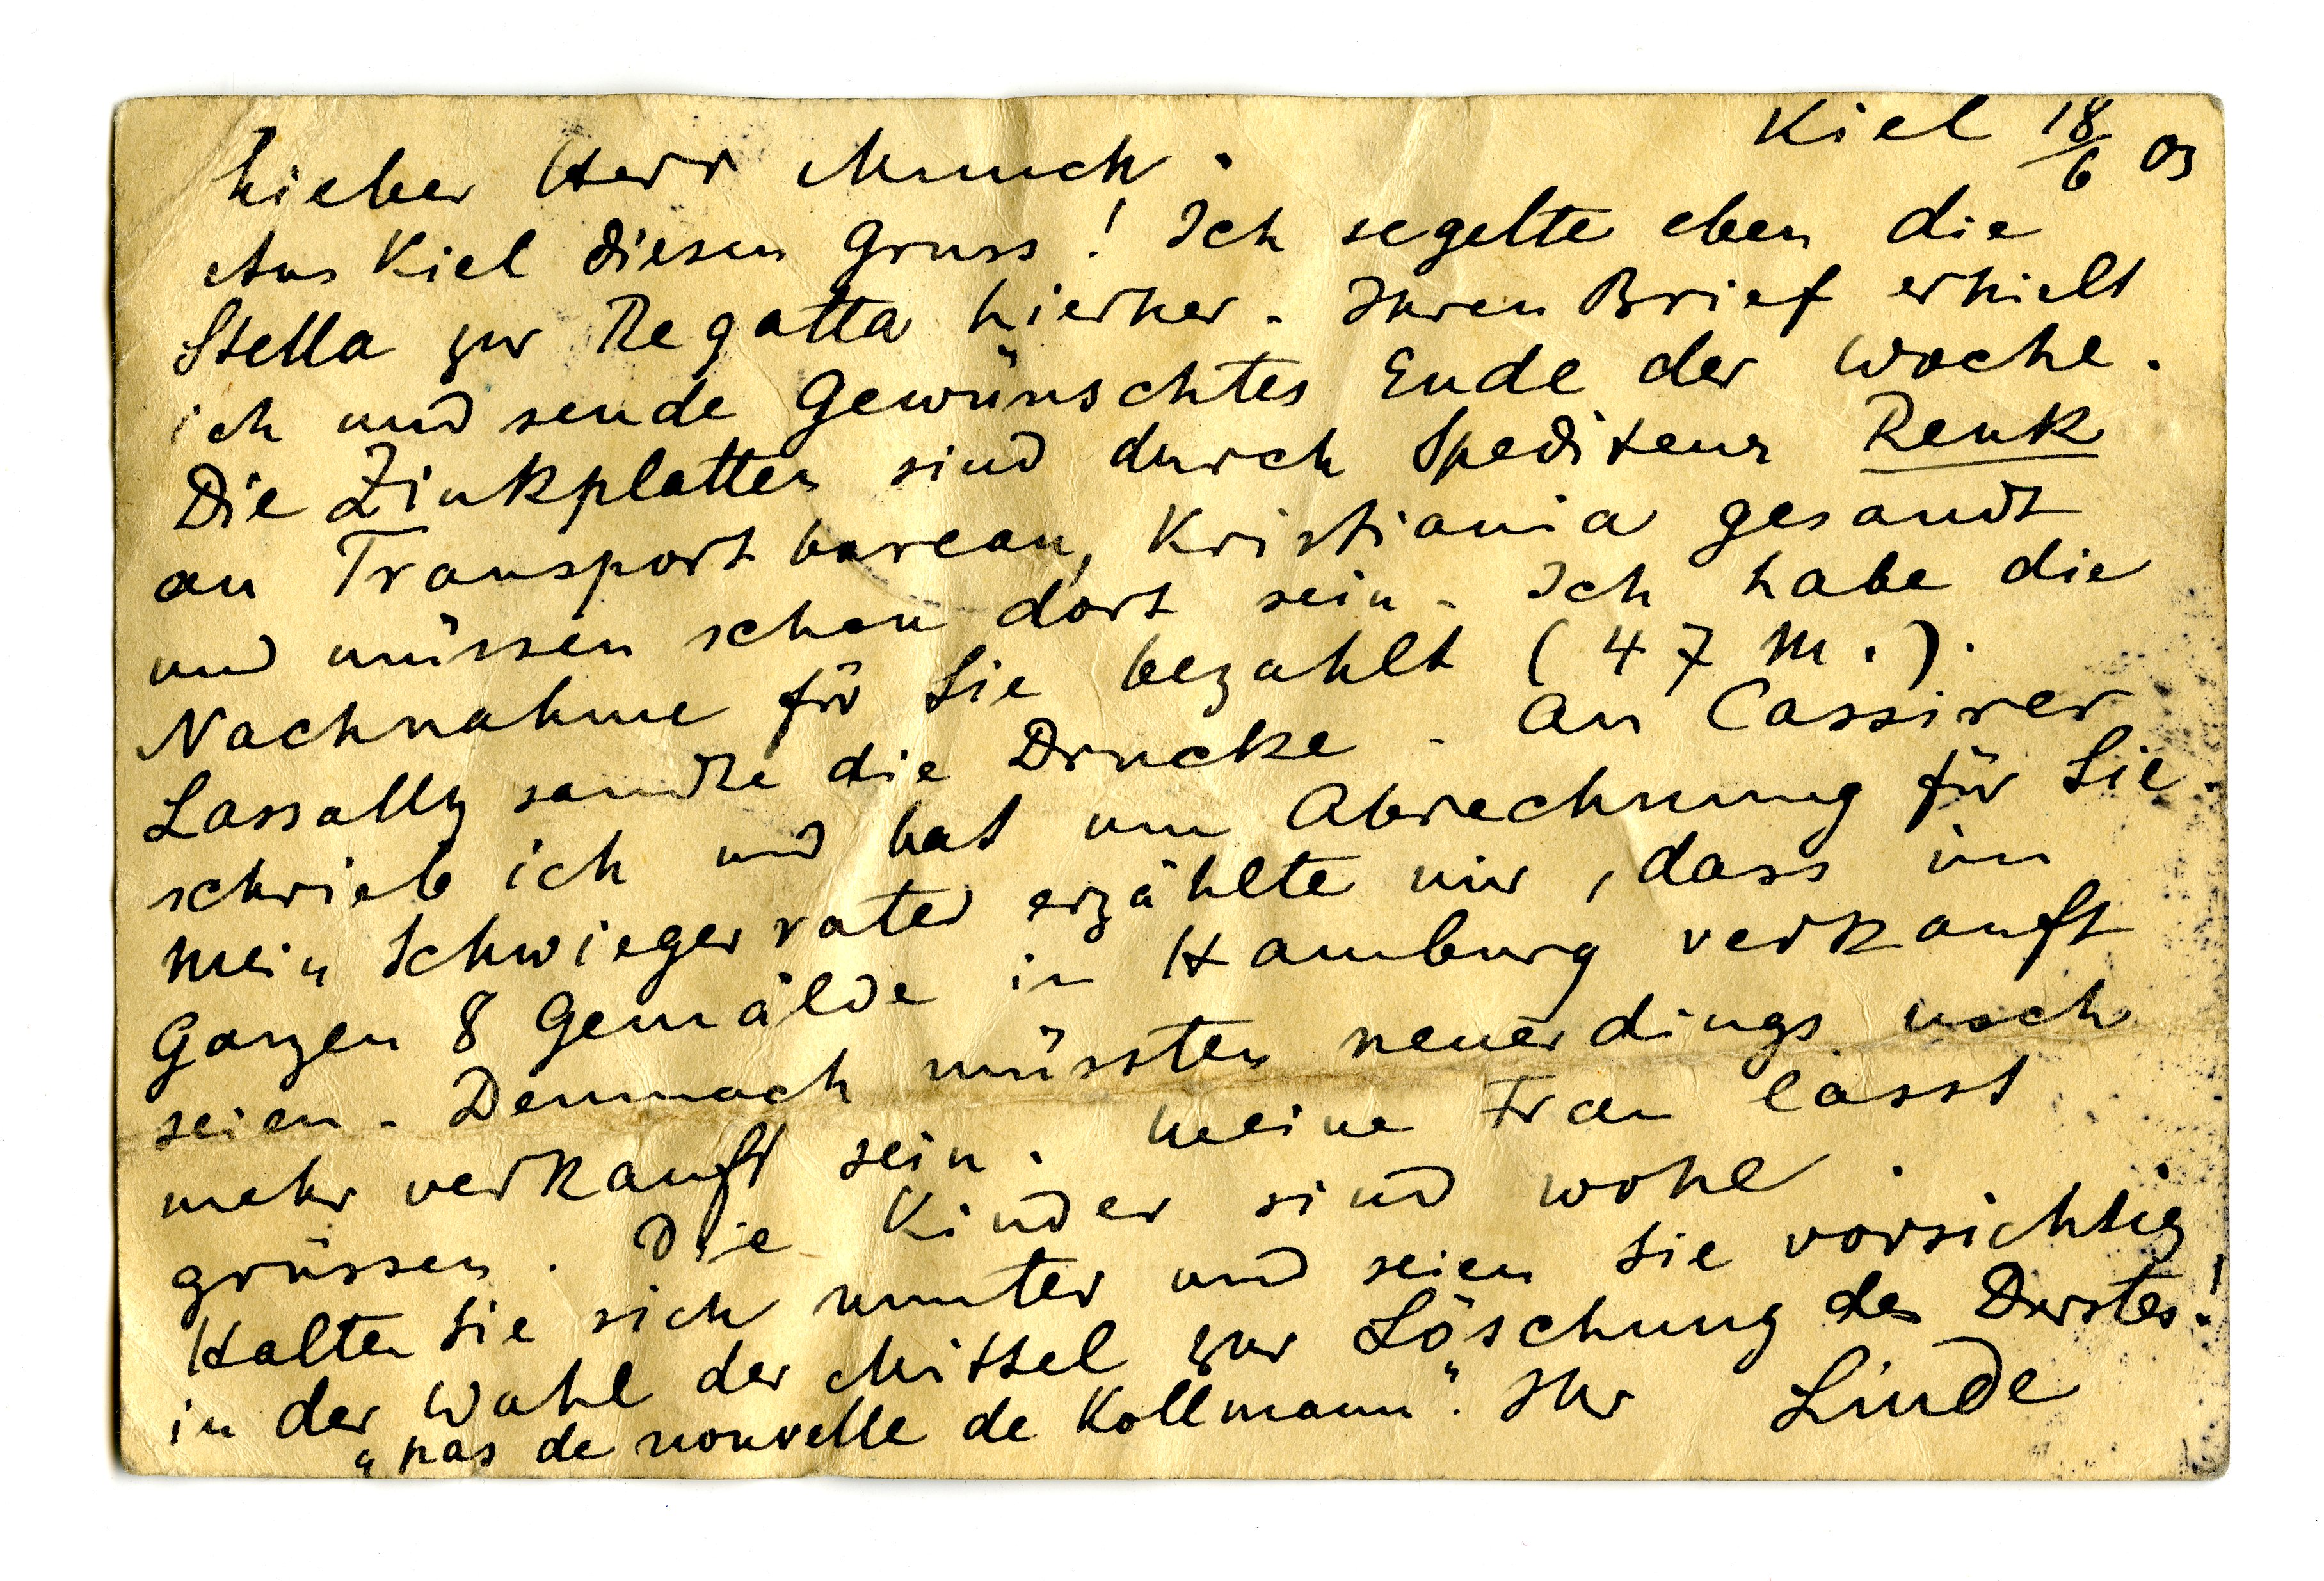 Kiel 18/6 03
Lieber Herr Munch.
Aus Kiel diesen Gruss! Ich segelte eben die
Stella zur Regatta hierher. Ihren Brief erhielt
ich und sende Gewünschtes Ende der Woche.
Die Zinkplatten sind durch Spediteur Renk
an Transportbureau, Kristiania gesandt
und müssen schon dort sein. Ich habe die
Nachnahme für Sie bezahlt (47 M.).
Lassally sandte die Drucke. An Cassirer
schrieb ich und bat um Abrechnung für Sie.
Mein Schwiegervater erzählte mir, dass im
Ganzen 8 Gemälde in Hamburg verkauft
seien. Demnach müssten neuerdings noch
mehr verkauft sein. Meine Frau lässt
grüssen. Die Kinder sind wohl.
Halten Sie sich munter und seien Sie vorsichtig
in der Wahl der Mittel zur Löschung des Durstes!
„pas de nouvelle de Kollmann“. Ihr Linde